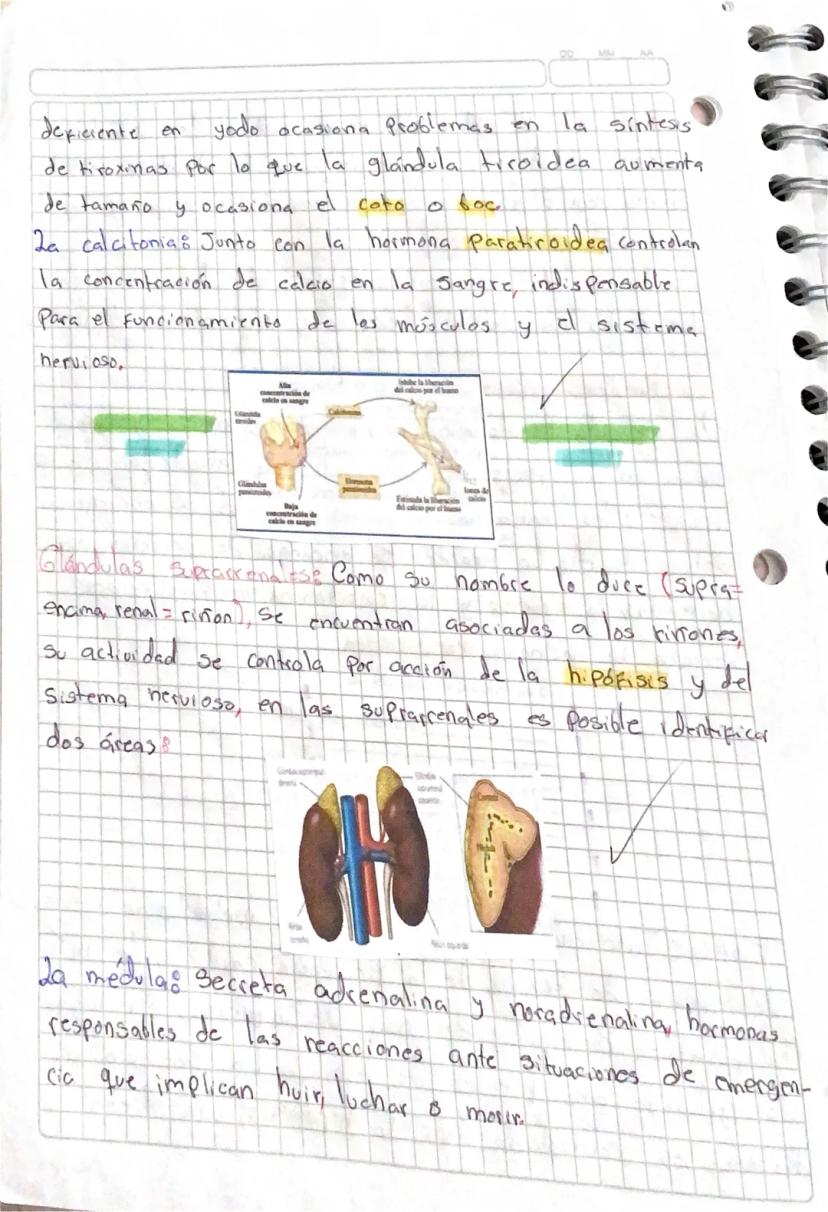 DD MM AA
deficiente en yodo ocasiona Problemas en la síntesis
de tiroxinas Por lo que la glándula tiroidea aumenta
de tamaño y ocasiona el coto o boc.
La calcitonia: Junto con la hormona Paratiroidea controlan
la concentración de calcio en la sangre, indispensable
Para el Funcionamiento de los músculos y el sistema
nervioso.
Alta
concentración de
calcio en sangre
Inhibe la liberación
del calcio por el hueso
Glándula
tiroides
Calcitonina
Glándulas
paratiroides
Hormona
paratiroidea
Baja
concentración de
calcio en sangre
Estimula la liberación
del calcio por el hueso
Iones de
calcio
Glándulas suprarrenales: Como su nombre lo duce (supra=
encima, renal = riñon), se encuentran asociadas a los riñones,
su actividad se controla por acción de la hipófisis y del
sistema nervioso, en las suprarrenales es posible identificar
dos áreas:
Corteza
Médula
La médula: Secreta adrenalina y noradrenalina, hormonas
responsables de las reacciones ante situaciones de emergen-
cia que implican huir, luchar o morir.